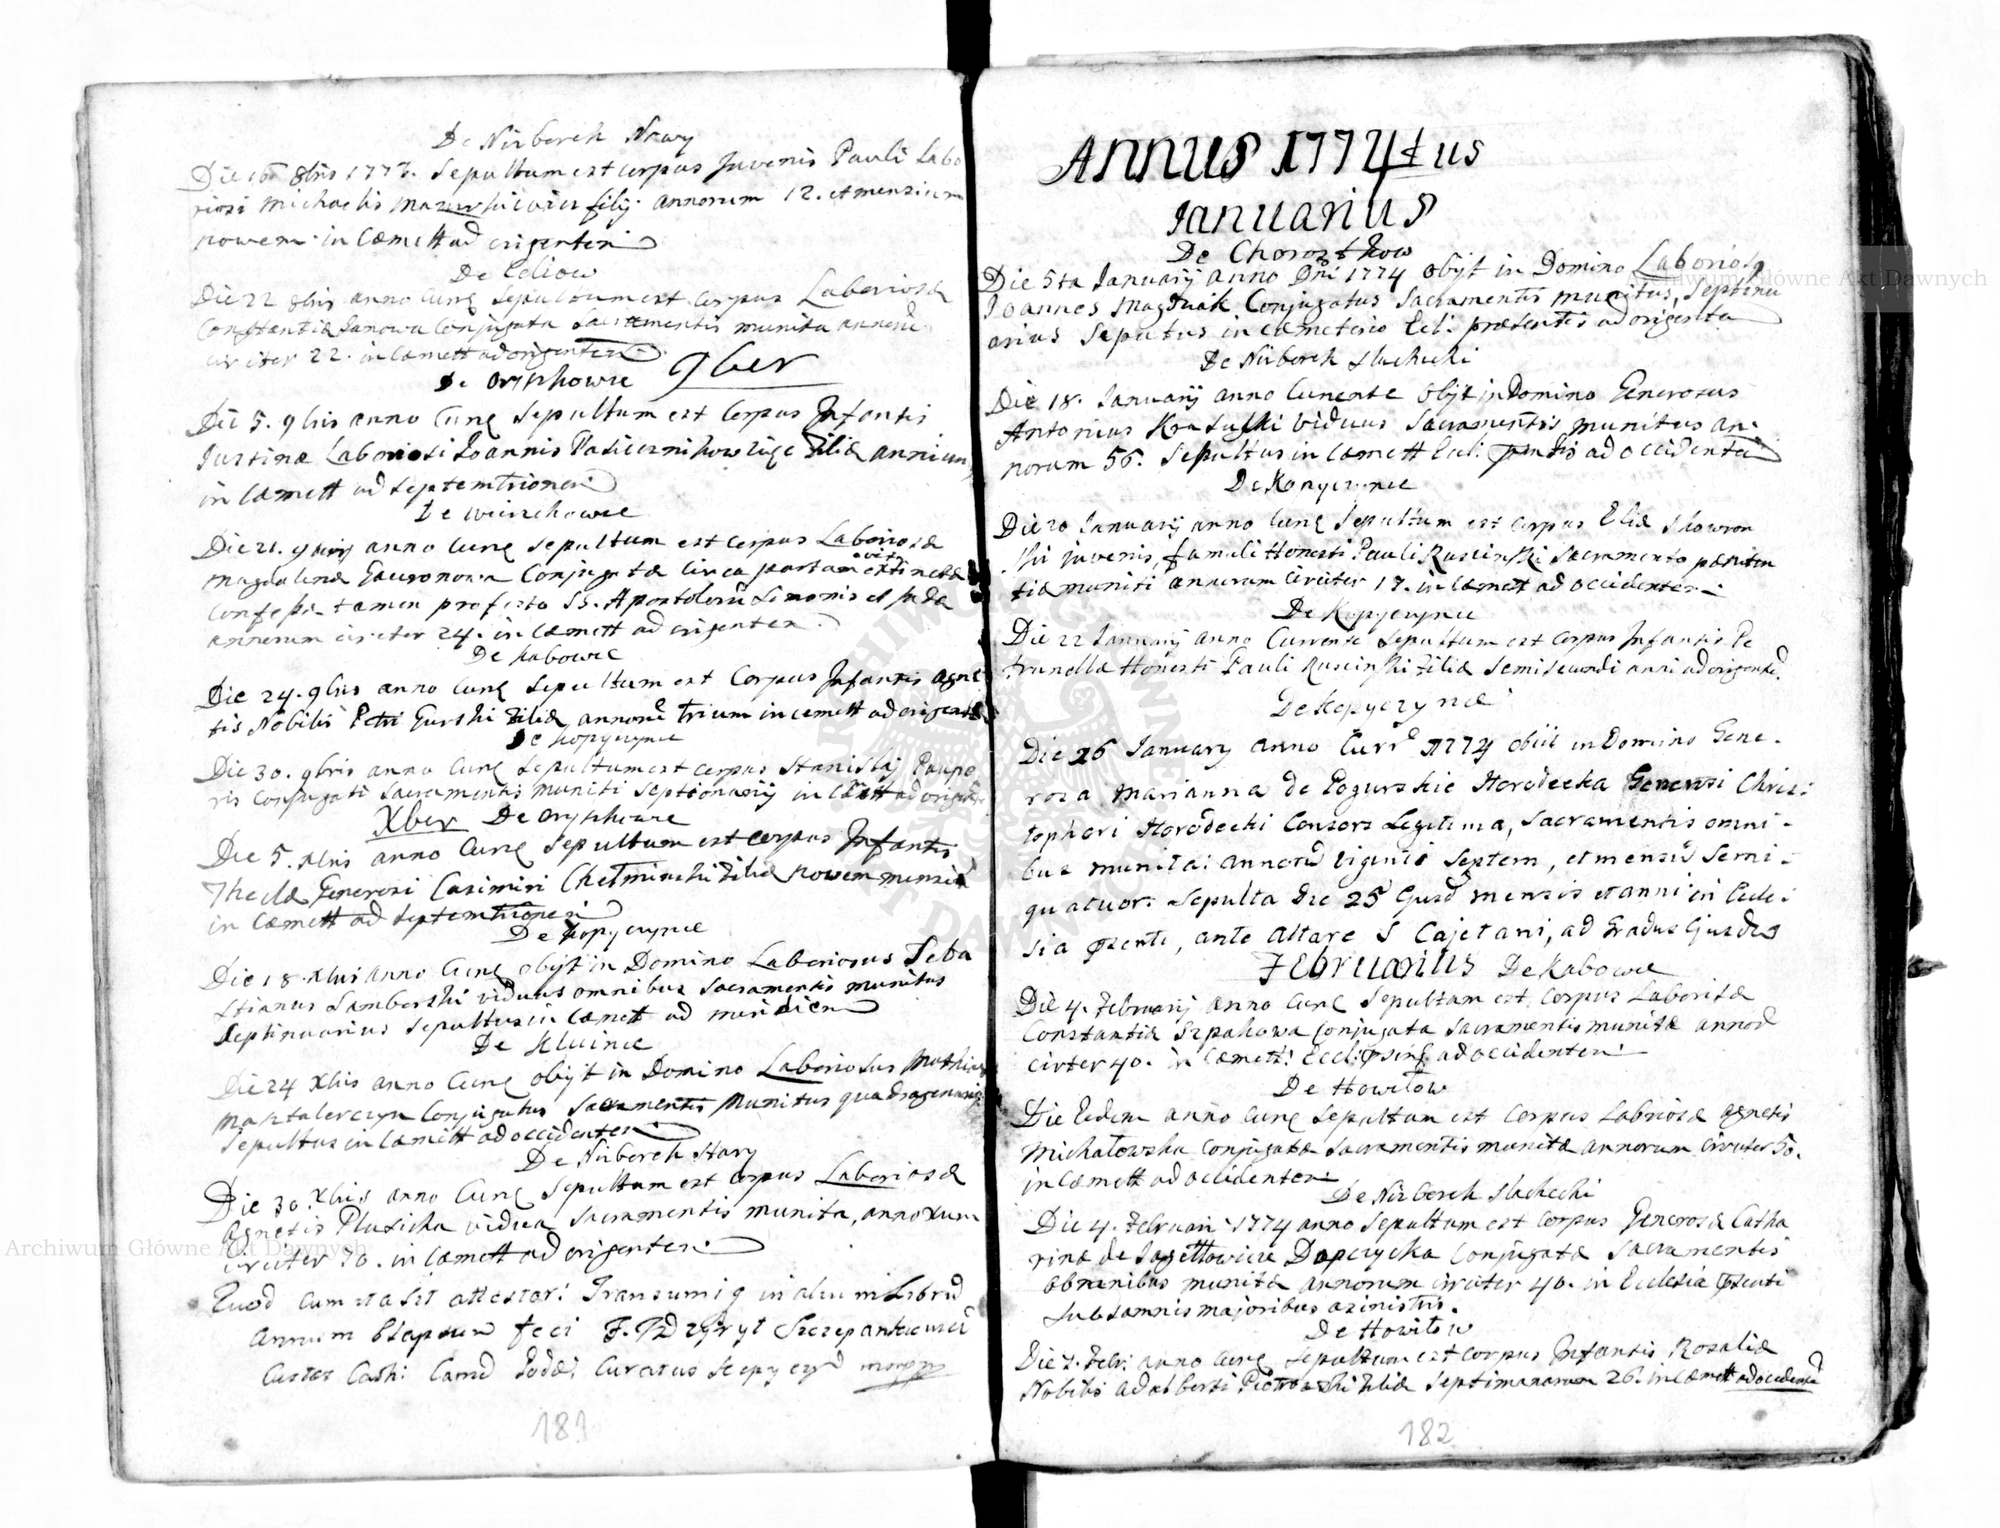 De Nirborek Nowy
Die 16 8bris 1773. Sepultum est corpus Juvenis Pauli Labo
riosi Michaelis filij annorum 12. et mensium
nowem in Cœmett ad origentem
De Celiow
Die 22 8bris anno Curę Sepultum est Corpus Laboriosæ
Constantiæ Janowa Conjugata Sacramentis munita annorū
circiter 22. in Cœmett ad origentem
De Oryszkowce 9ber
Die 5. 9bris anno Curę Sepultum est Corpus Infantis
Justinæ Laboriosi Joannis filiæ anni
in Cœmett ad Septemtrionem
De
Die 21. anno Curę Sepultum est Corpus Laboriosæ
Magdalenæ Conjugatæ circa partum extinctæ
Confessæ tamen profesto SS. Apostolorū Simonis et Judæ
annorum circiter 24. in Cœmett ad origentem
De Kabowce
Die 24. 9bris anno Curę Sepultum est Corpus Infantis Agne
tis Nobilis Petri Gurski filiæ annorū trium in cœmett ad origentē
De Kopyczynce
Die 30. 9bris anno Curę Sepultum est Corpus Stanislaj Paupe
ris Conjugati Sacramentis Muniti Septuonarij in Cœmett ad origentē
Xber De Oryszkowce
Die 5. Xbris anno Curę Sepultum est Corpus Infantis
Theclæ Generosi Casimiri Chełmiński filiæ nowem mensiū
in Cœmett ad Septemtrionem
De Kopyczynce
Die 18. Xbris Anno Curę obijt in Domino Laboriosus Seba
stianus Samborski viduus omnibus Sacramentis munitus
Septinuarius Sepultus in Cœmett ad meridiem
De
Die 24 Xbris anno Curę obijt in Domino Laboriosus Mathias
Conjugatus Sacramentis Munitus quadragenarius
Sepultus in Cœmett ad occidentem
De Nirborek Stary
Die 30. Xbris anno Curę Sepultum est Corpus Laboriosæ
Agnetis Pluzicka vidua Sacramentis munita, annorum
circiter 70. in Cœmett ad origentem
Quod cum ita sit attestor: in alium Librū
Annum Elapsum feci F. Szczepankiewicz
Curatus
181
Annus 1774tus
Januarius
De Chorostkow
Die 5ta Januarij anno Dni 1774 Obijt in Domino Laboriosg
Joannes Magdziak Conjugatus Sacramentis munitus, Septinu
arius Seputus in cœmeterio Ecl: præsentis ad origentē
De Nirborek Slachecki
Die 18. Januarij anno Curente Obijt in Domino Generosus
Antonius Krasuski viduus Sacramentis munitus an-
norum 56. Sepultus in Cœmett Ecl: ad occidentē
De Kopyczynce
Die 20 Januarij anno Curę Sepultum est corpus Eliæ Skowron
ski juvenis, famuli Honesti Pauli Ruscinski Sacramento pœniten
tiæ muniti annorum circiter 17. in Cœmett ad occidentem
De Kopyczynce
Die 22 Januarij anno Currente Sepultum est Corpus Infantis Pe
trunellæ Honesti Pauli Ruscinski filiæ Semisecundi anni ad origentē
De Kopyczynce
Die 26 January anno Curr 1774 obiit in Domino Gene-
rosa Marianna de Pogurskie Horodecka Generosi Chris:
tophori Horodecki Consors Legitima, Sacramentis omni-
bus munita: annorū viginti septem, et mensiū Semi-
quatuor: Sepulta Die 25 mensis et anni in Eccle:
sia , ante Altare S Cajetani, ad Gradus Ejusdē
Februarius De Kabowce
Die 4. Februarij anno Curę Sepultum est Corpus Laboriosæ
Constantiæ Szpakowa conjugata Sacramentis munitæ annorū
circiter 40. in Cœmett: ad occidentem
De Howiłow
Die Eadem anno Curę Sepultum est Corpus Laboriosæ Agnetis
Michałowska conjugatæ Sacramentis munitæ annorum circiter 50.
in Cœmett ad occidentem
De Nirborek Slachecki
Die 4. Februari 1774 anno Sepultum est Corpus Generosæ Catha
rinæ de Jagełłowicze Dopczycka Conjugatæ Sacramentis
abomnibus munitæ annorum circiter 40. in Ecclesia
sub Samnis majoribus a sinistris.
De Howiłow
Die 7. Febr: anno Curę Sepultum est Corpus Infantis Rosaliæ
Nobilis Adalberti filiæ Septimanarum 26. in Cœmett ad occidentē
182
Archiwum Główne Akt Dawnych
Archiwum Główne Akt Dawnych